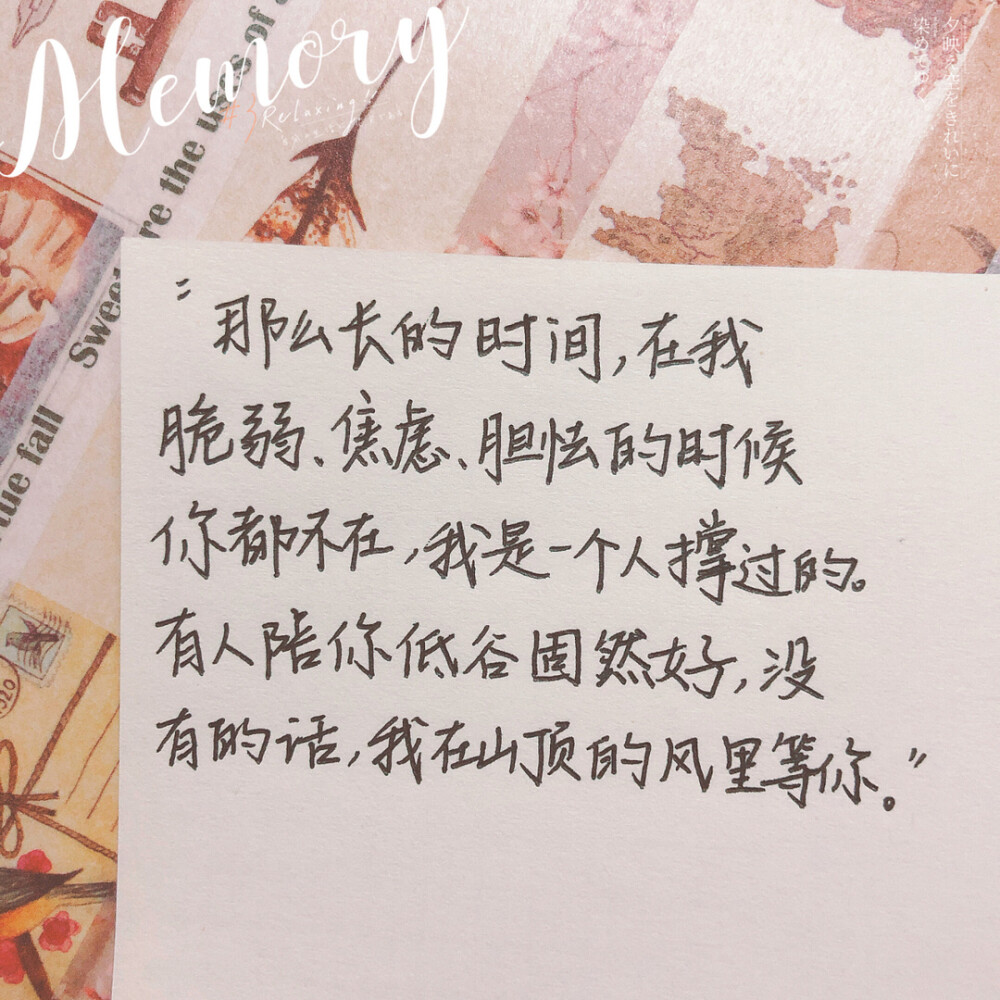 Memory
#3 Relaxing
Sweet
re the us s of a
tue fall
"那么长的时间,在我
脆弱、焦虑、胆怯的时候
你都不在,我是一个人撑过的。
有人陪你低谷固然好,没
有的话,我在山顶的风里等你。"